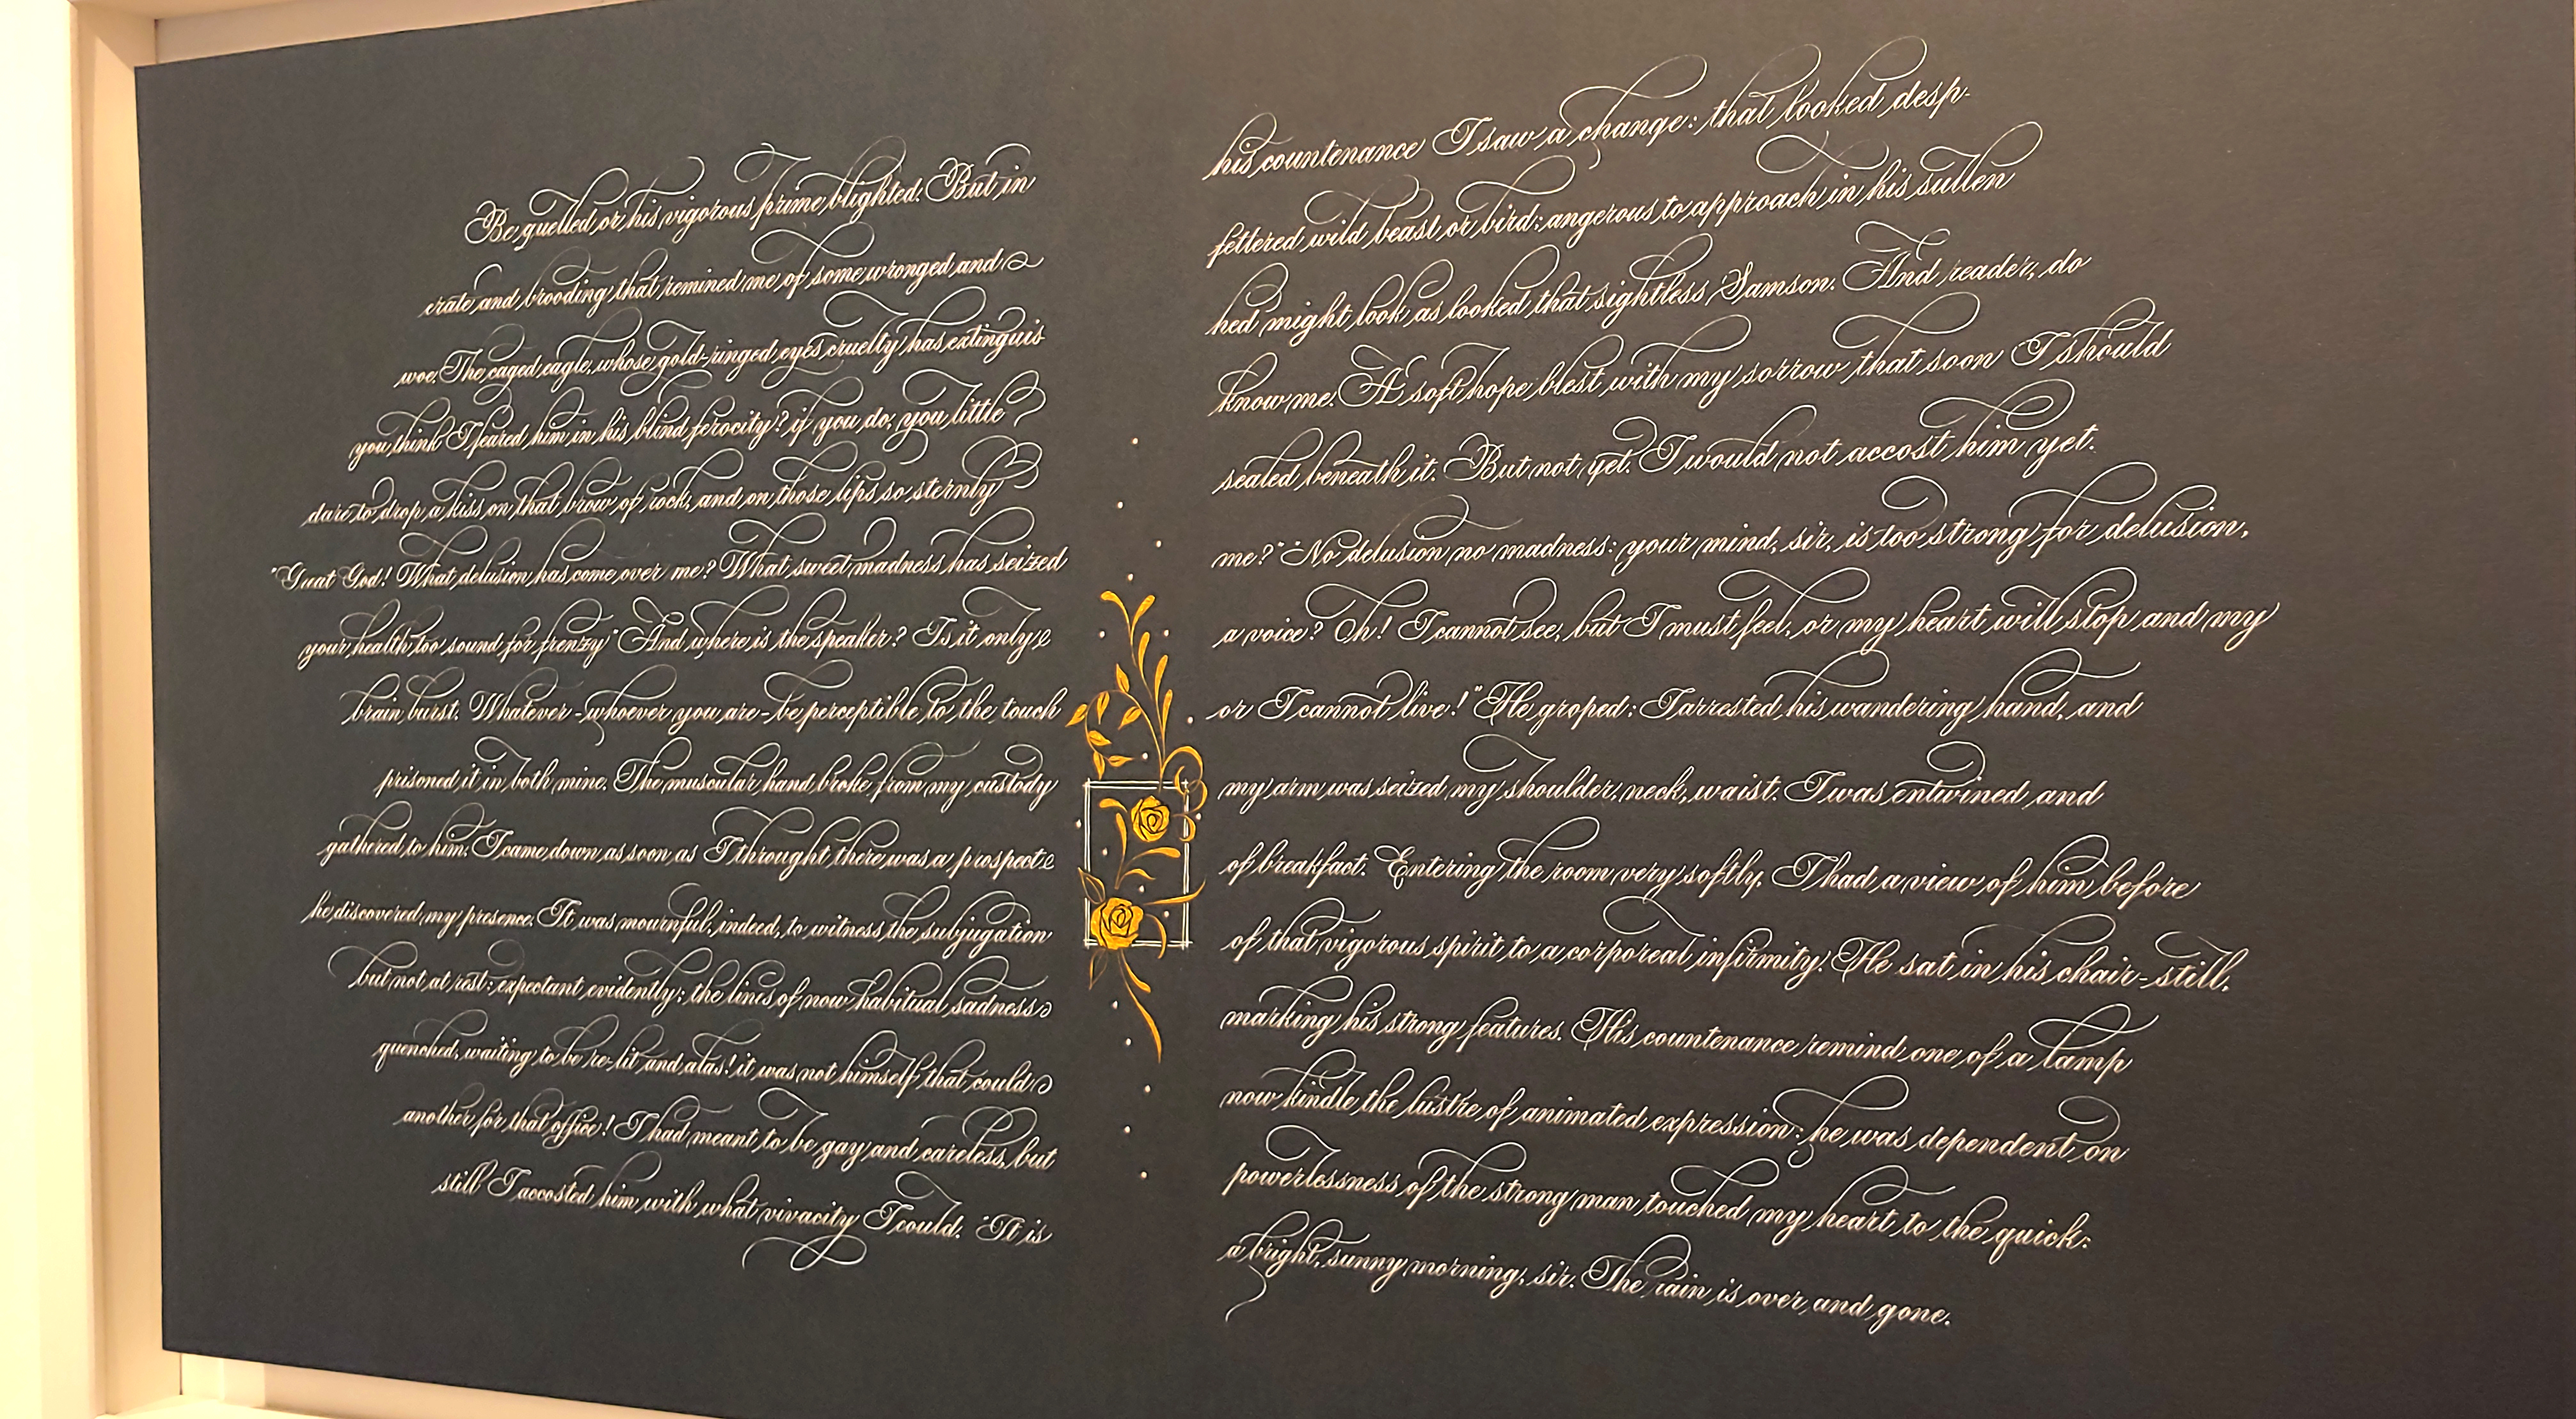 Be quelled or his vigorous prime blighted. But in his countenance I saw a change: that looked desp-
erate and brooding that remined me of some wronged and fettered wild beast or bird; angerous to approach in his sullen
woe. The caged eagle, whose gold-ringed eyes cruelty has extinguis- hed might look as looked that sightless Samson. And reader, do
you think I feared him in his blind ferocity? if you do, you little know me. A soft hope blest with my sorrow that soon I should
dare to drop a kiss on that brow of rock, and on those lips so sternly sealed beneath it. But not yet. I would not accost him yet.
"Great God! What delusion has come over me? What sweet madness has seized me?" "No delusion no madness: your mind, sir, is too strong for delusion,
your health too sound for frenzy" And where is the speaker? Is it only a voice? Oh! I cannot see, but I must feel, or my heart will stop and my
brain burst. Whatever - whoever you are - be perceptible to the touch or I cannot live!" He groped; I arrested his wandering hand, and
prisoned it in both mine. The muscular hand broke from my custody my arm was seized my shoulder, neck, waist. I was entwined and
gathered to him. I came down as soon as I throught there was a prospect of breakfast. Entering the room very softly, I had a view of him before
he discovered my presence. It was mournful, indeed, to witness the subjugation of that vigorous spirit to a corporeal infirmity. He sat in his chair - still,
but not at rest: expectant evidently; the lines of now habitual sadness marking his strong features. His countenance remind one of a lamp
quenched, waiting to be re-lit and alas! it was not himself that could now kindle the lustre of animated expression: he was dependent on
another for that office! I had meant to be gay and careless, but powerlessness of the strong man touched my heart to the quick:
still I accosted him with what vivacity I could. "It is a bright, sunny morning, sir. The rain is over and gone.